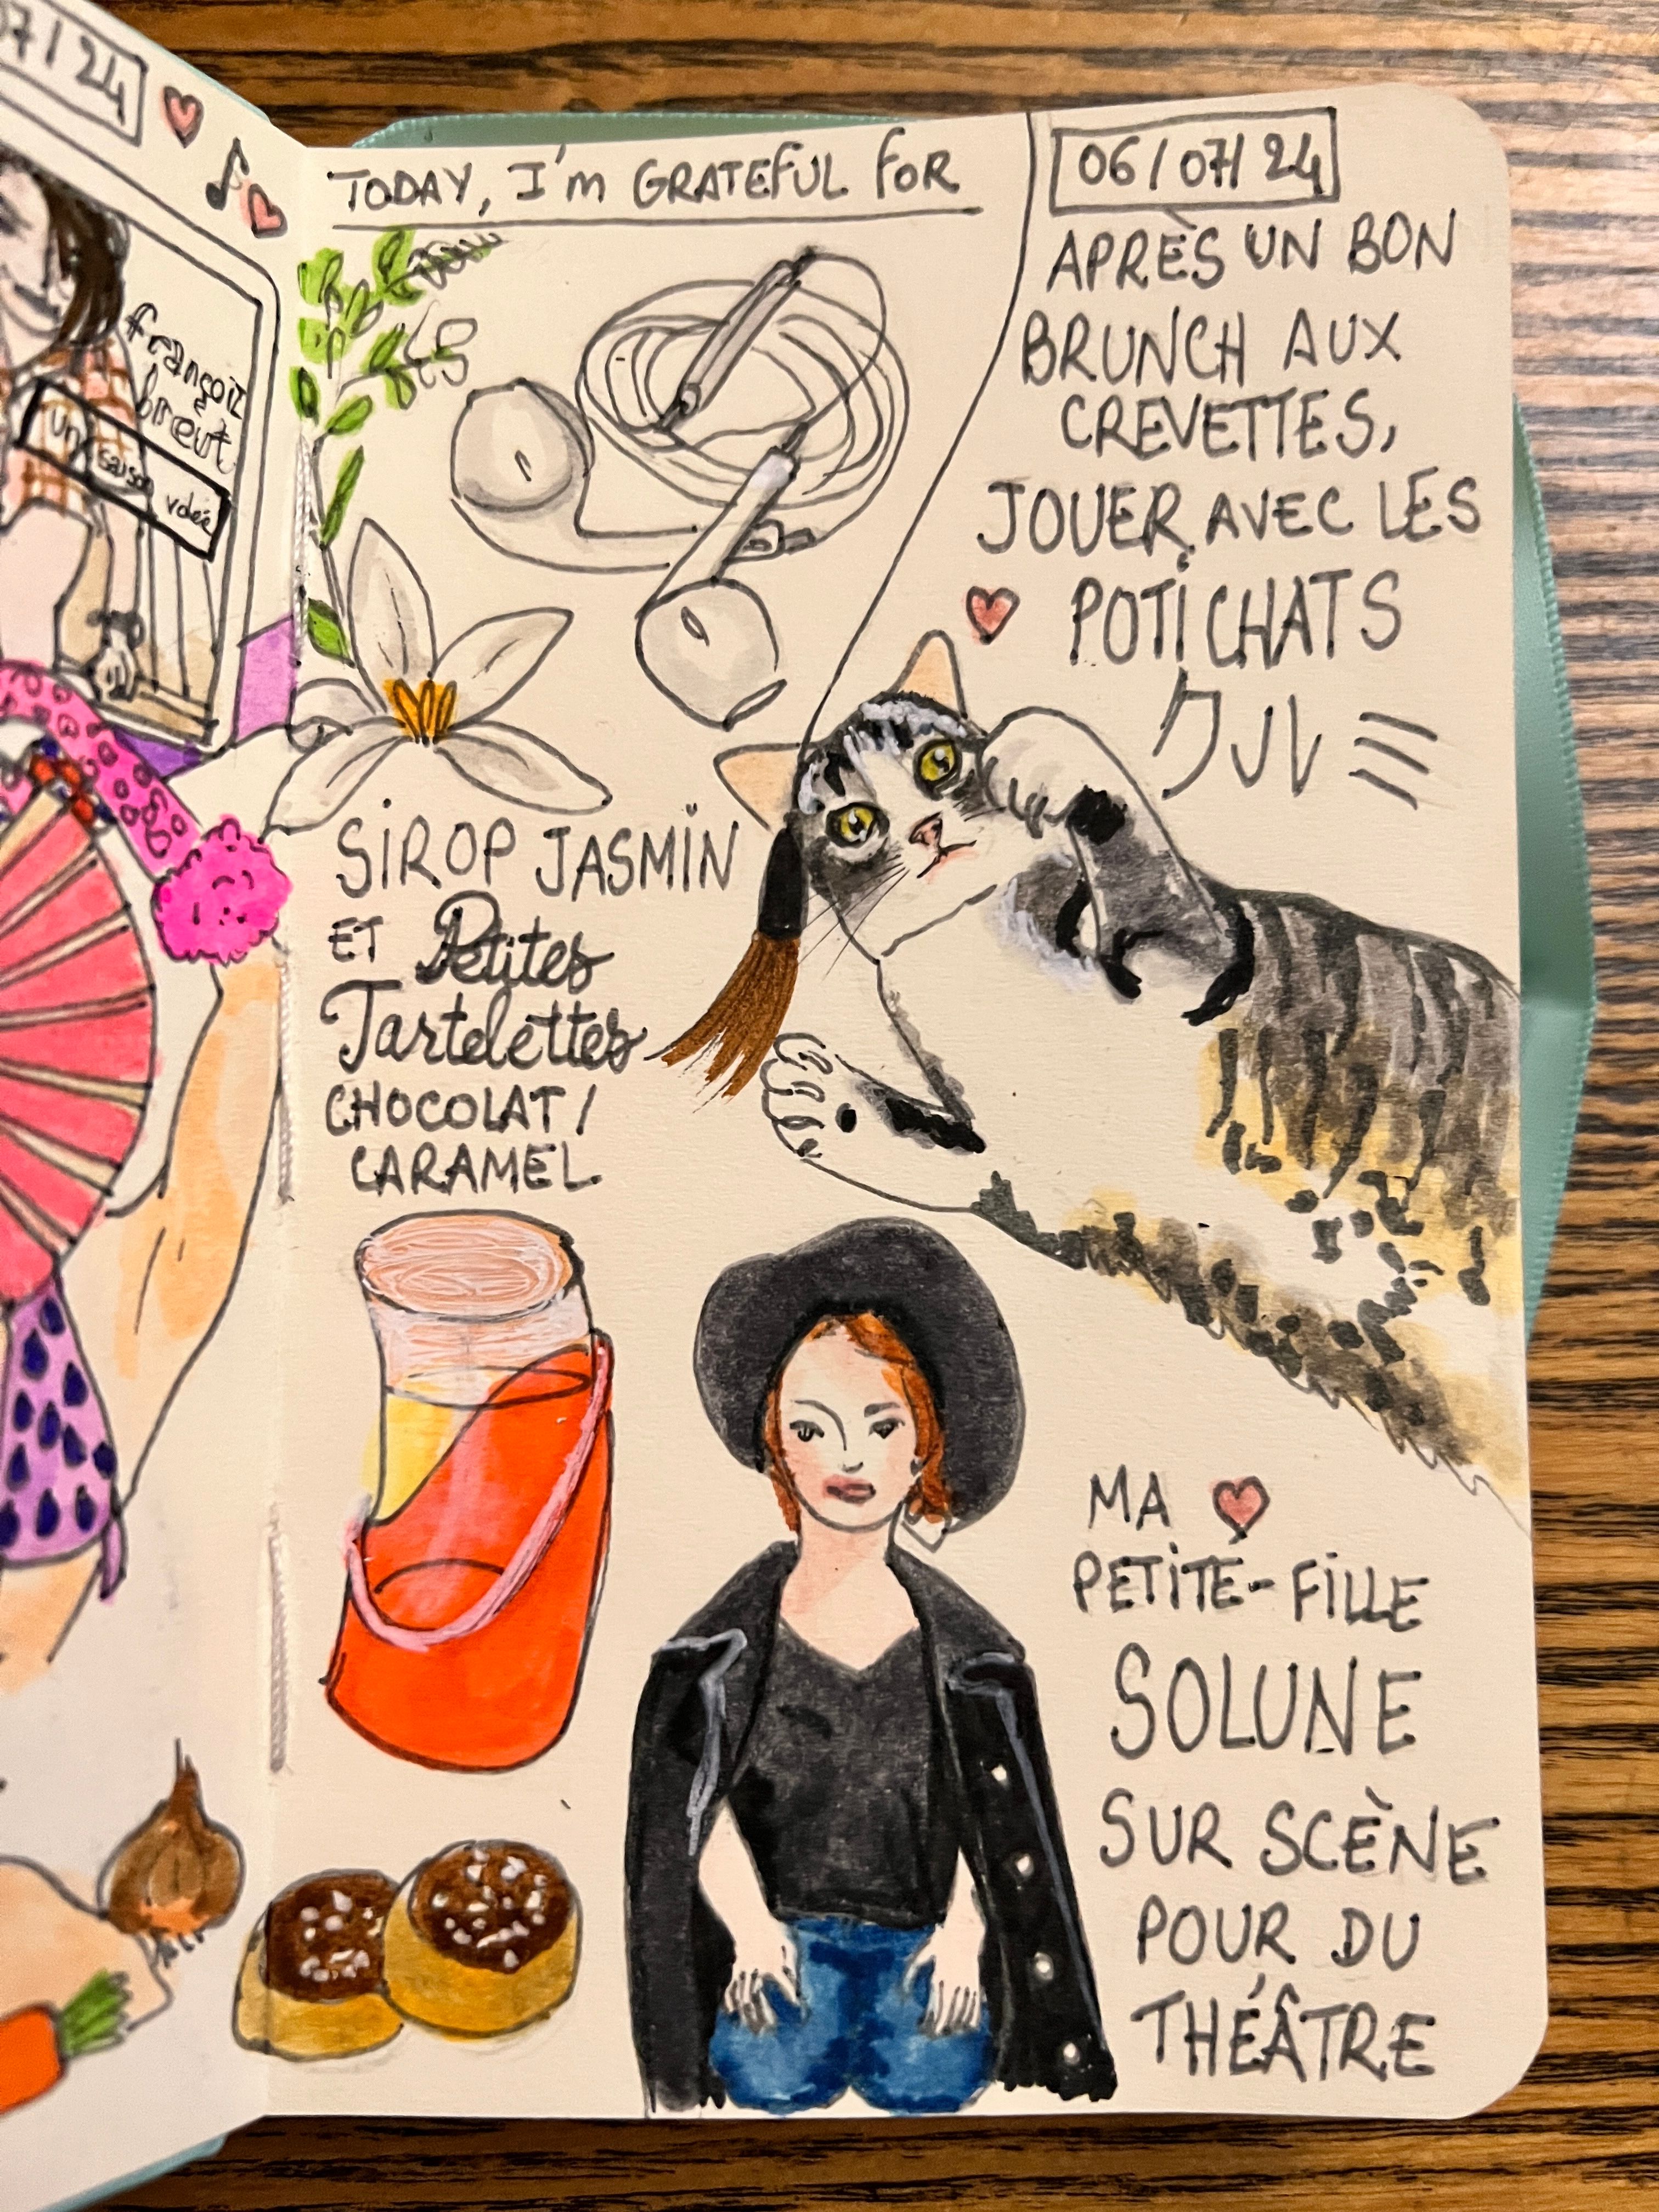 07/24
françoiZ
breut
un
saison volée
TODAY, I'm GRATEFUL FOR
06/07/24
APRÈS UN BON
BRUNCH AUX
CREVETTES,
JOUER AVEC LES
POTiCHATS
クルミ
SiROP JASMiN
ET Petites
Tartelettes
CHOCOLAT/
CARAMEL
MA
PETiTE-FiLLE
SOLUNE
SUR SCÈNE
POUR DU
THÉÂTRE